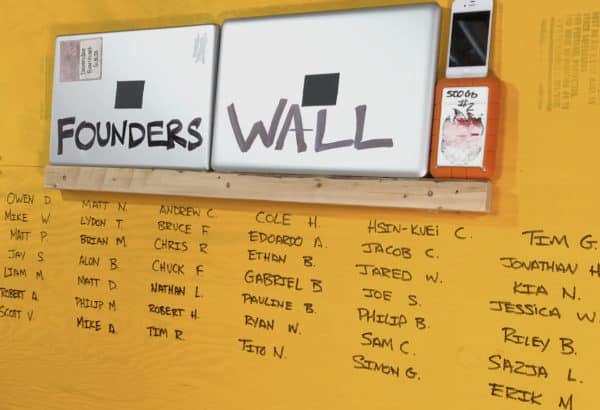 FOUNDERS WALL
500GB
#2
OWEN D.
MIKE W.
MATT P.
JAY S.
LIAM M.
ROBERT A.
SCOTT V.
MATT N.
LYDON T.
BRIAN M
ALON B.
MATT D.
PHILIP M.
MIKE D.
ANDREW C.
BRUCE F
CHRIS R
CHUCK F
NATHAN L.
ROBERT H.
TIM R.
COLE H.
EDOARDO A.
ETHAN B.
GABRIEL B
PAULINE B.
RYAN W.
TITO N.
HSIN-KUEI C.
JACOB C.
JARED W.
JOE S.
PHILIP B.
SAM C.
SIMON G.
TIM G.
JONATHAN H
KIA N.
JESSICA W.
RILEY B.
SAZJA L.
ERIK M